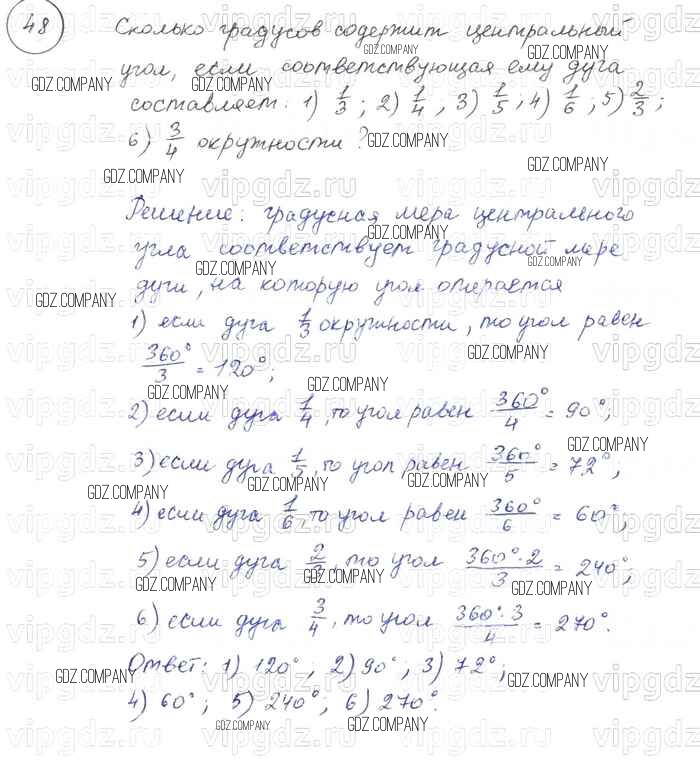 48
Сколько градусов содержит центральный
угол, если соответствующая ему дуга
составляет: 1) 1/3 ; 2) 1/4 , 3) 1/5 ; 4) 1/6 ; 5) 2/3 ;
6) 3/4 окружности?
Решение: градусная мера центрального
угла соответствует градусной мере
дуги, на которую угол опирается
1) если дуга 1/3 окружности, то угол равен
360°/3 = 120°;
2) если дуга 1/4, то угол равен 360°/4 = 90°;
3) если дуга 1/5, то угол равен 360°/5 = 72°;
4) если дуга 1/6, то угол равен 360°/6 = 60°;
5) если дуга 2/3, то угол 360°·2/3 = 240°;
6) если дуга 3/4, то угол 360°·3/4 = 270°.
Ответ: 1) 120°; 2) 90°, 3) 72°;
4) 60°; 5) 240°; 6) 270°.
GDZ.COMPANY
vipgdz.ru